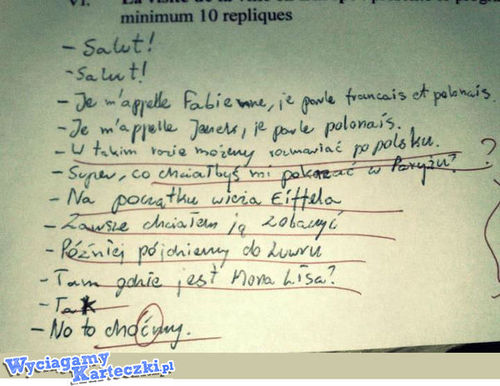 VI. La visite de la ville
minimum 10 repliques
- Salut!
- Salut!
- Je m'appelle Fabienne, je parle francais et polonais.
- Je m'appelle Janek, je parle polonais.
- W takim razie możemy rozmawiać po polsku. ?
- Super, co chciałbyś mi pokazać w Paryżu?
- Na początku wieża Eiffela
- Zawsze chciałem ją zobaczyć
- Później pójdziemy do Luwru
- Tam gdzie jest Mona Lisa?
- Tak
- No to choćmy.
Wyciągamy
Karteczki.pl